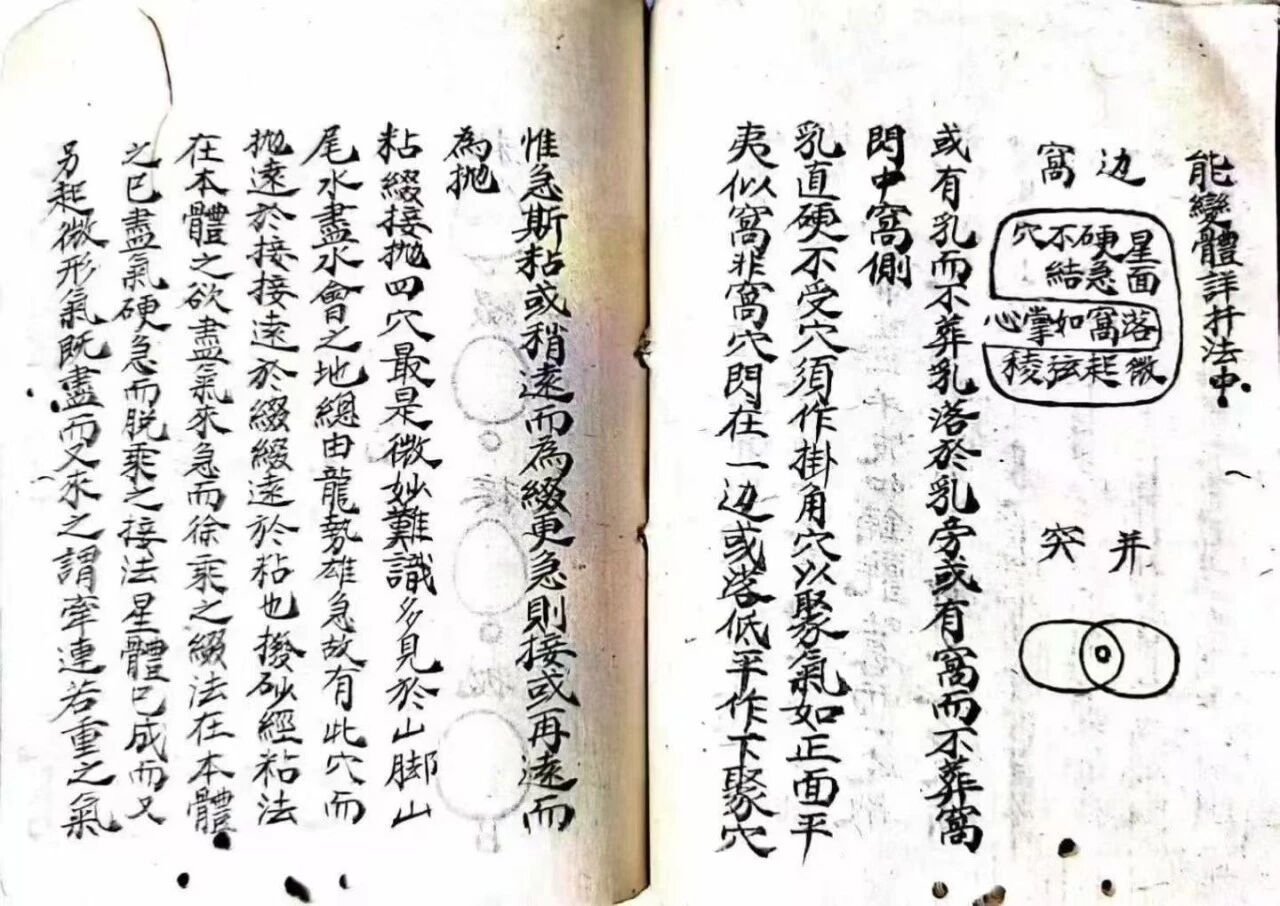 能變體詳井法中
边窩
星面
硬急
不結
穴
落窩如掌心
微起弦稜
并突
或有乳而不葬乳落於乳旁或有窩而不葬窩
閃中窩側
乳直硬不受穴須作掛角穴以聚氣如正面平
夷似窩非窩穴閃在一边或落低平作下聚穴
惟急斯粘或稍遠而為綴更急則接或再遠而
為抛
粘綴接抛四穴最是微妙難識多見於山脚山
尾水盡水會之地總由龍勢雄急故有此穴而
抛遠於接接遠於綴綴遠於粘也撥砂經粘法
在本體之欲盡氣來急而徐乘之綴法在本體
之已盡氣硬急而脱乘之接法星體已成而又
另起微形氣既盡而又來之謂牽連若重之氣